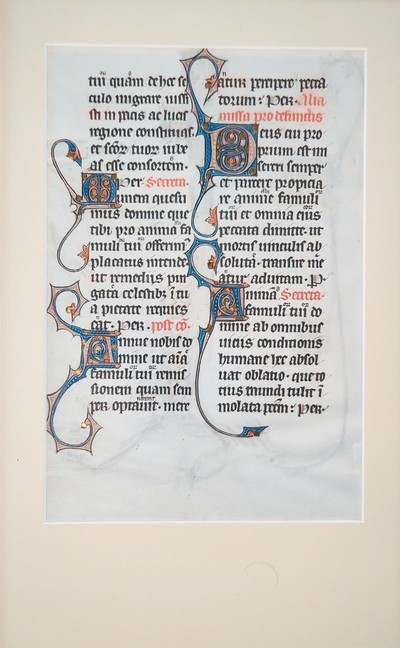 tui quam de hoc se
culo migrare iussi
sti in pacis ac lucis
regione constituas·
et scõr tuor iube
as esse consortem·
Per· Secreta·
Munera quesu
mus domine que
tibi pro anima fa
muli tui offerim
placatus intende·
ut remediis pur
gata celestib; ĩ tu
a pietate requies
cat· Per· post cõ·
Annue nobis do
mine ut aĩa
famuli tui remis
sionem quam sem
per optavit· mere
atur percipere pecca
torum· Per· Alia
missa pro defunctis
Deus cui pro
prium est mi
sereri semper
et parcere propicia
re anime famuli
tui et omnia eius
peccata dimitte· ut
mortis vinculis ab
soluta· transire me
atur ad vitam· P·
Animã Secreta·
famuli tui do
mine ab omnibus
viciis conditionis
humane hec absol
vat oblatio· que to
tius mundi tulit ĩ
molata pctm· Per·